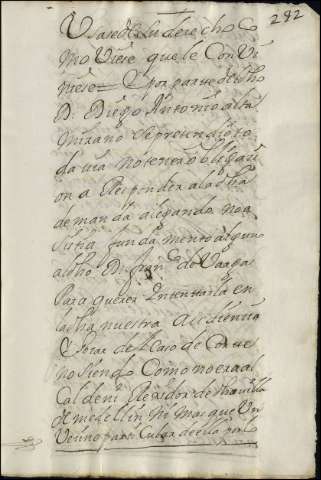 282
Usare de Su derecho Co
mo Viese que le Convi
niese = Y por parte del dho
D. Diego Antonio alta
mirano Se pretendio to
da via no tener obligaci
on a Responder a la dha
demanda alegando no a
sistia fundamento alguno
al dho D. fran.co de Vargas
Para querer Yntentarla en
la dha nuestra Audiencia
Y por de Caso de Corte
no siendo Como no era al
Calde ni Rexidor de la villa
de medellin ni mas que Un
Vecino particular de ella por lo